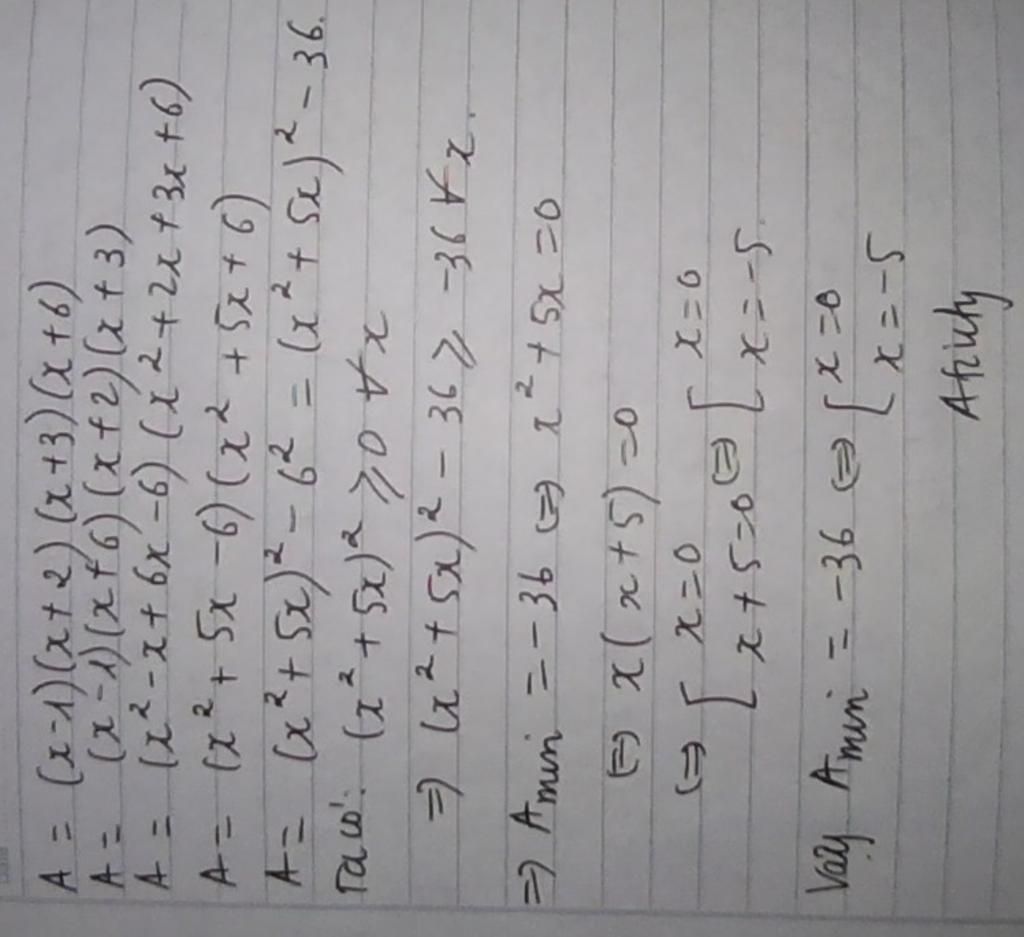 A = (x-1)(x+2)(x+3)(x+6)
A = (x-1)(x+6)(x+2)(x+3)
A = (x²-x+6x-6)(x²+2x+3x+6)
A = (x²+5x-6)(x²+5x+6)
A = (x²+5x)²-6² = (x²+5x)²-36.
Ta có: (x²+5x)² ≥ 0 ∀x
⇒ (x²+5x)²-36 ≥ -36 ∀x.
⇒ Amin = -36 ⇔ x²+5x=0
⇔ x(x+5)=0
⇔ [ x=0 ⇔ [ x=0
x+5=0 x=-5.
Vậy Amin = -36 ⇔ [ x=0
x=-5